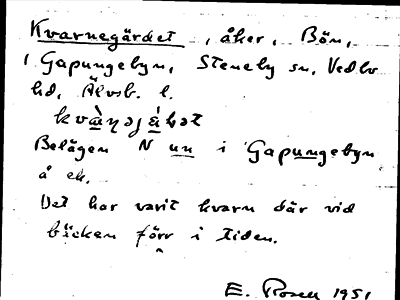 Kvarnegärdet, åker, Bön,
i Gapungebyn, Steneby sn, Vedbo
hd, Älvsb. l.
Belägen N un i Gapungebyn
å ek.
Det har varit kvarn där vid
bäcken förr i tiden.
E. Rosell 1951